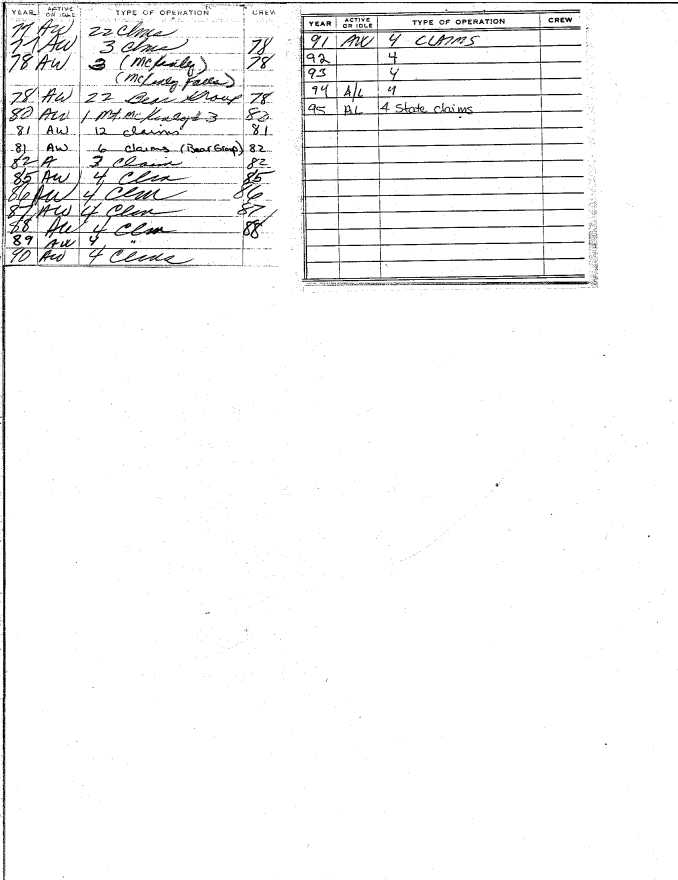 YEAR ACTIVE OR IDLE TYPE OF OPERATION CREW
77 AW 22 Clms
77 AW 3 Clms 78
78 AW 3 (McKinley) 78
(McKinley
78 AW 22 Bear Group 78
80 AW 1 Mt. McKinley & 3 82
81 AW 12 claims 81
81 AW 6 claims (Bear Group) 82
82 A 3 Claim 82
85 AW 4 Clm 85
86 AW 4 Clm 86
87 AW 4 Clm 87
88 AW 4 Clm 88
89 AW 4 "
90 AW 4 Clms
YEAR ACTIVE OR IDLE TYPE OF OPERATION CREW
91 AW 4 CLAIMS
92 4
93 4
94 A/L 4
95 AL 4 State claims